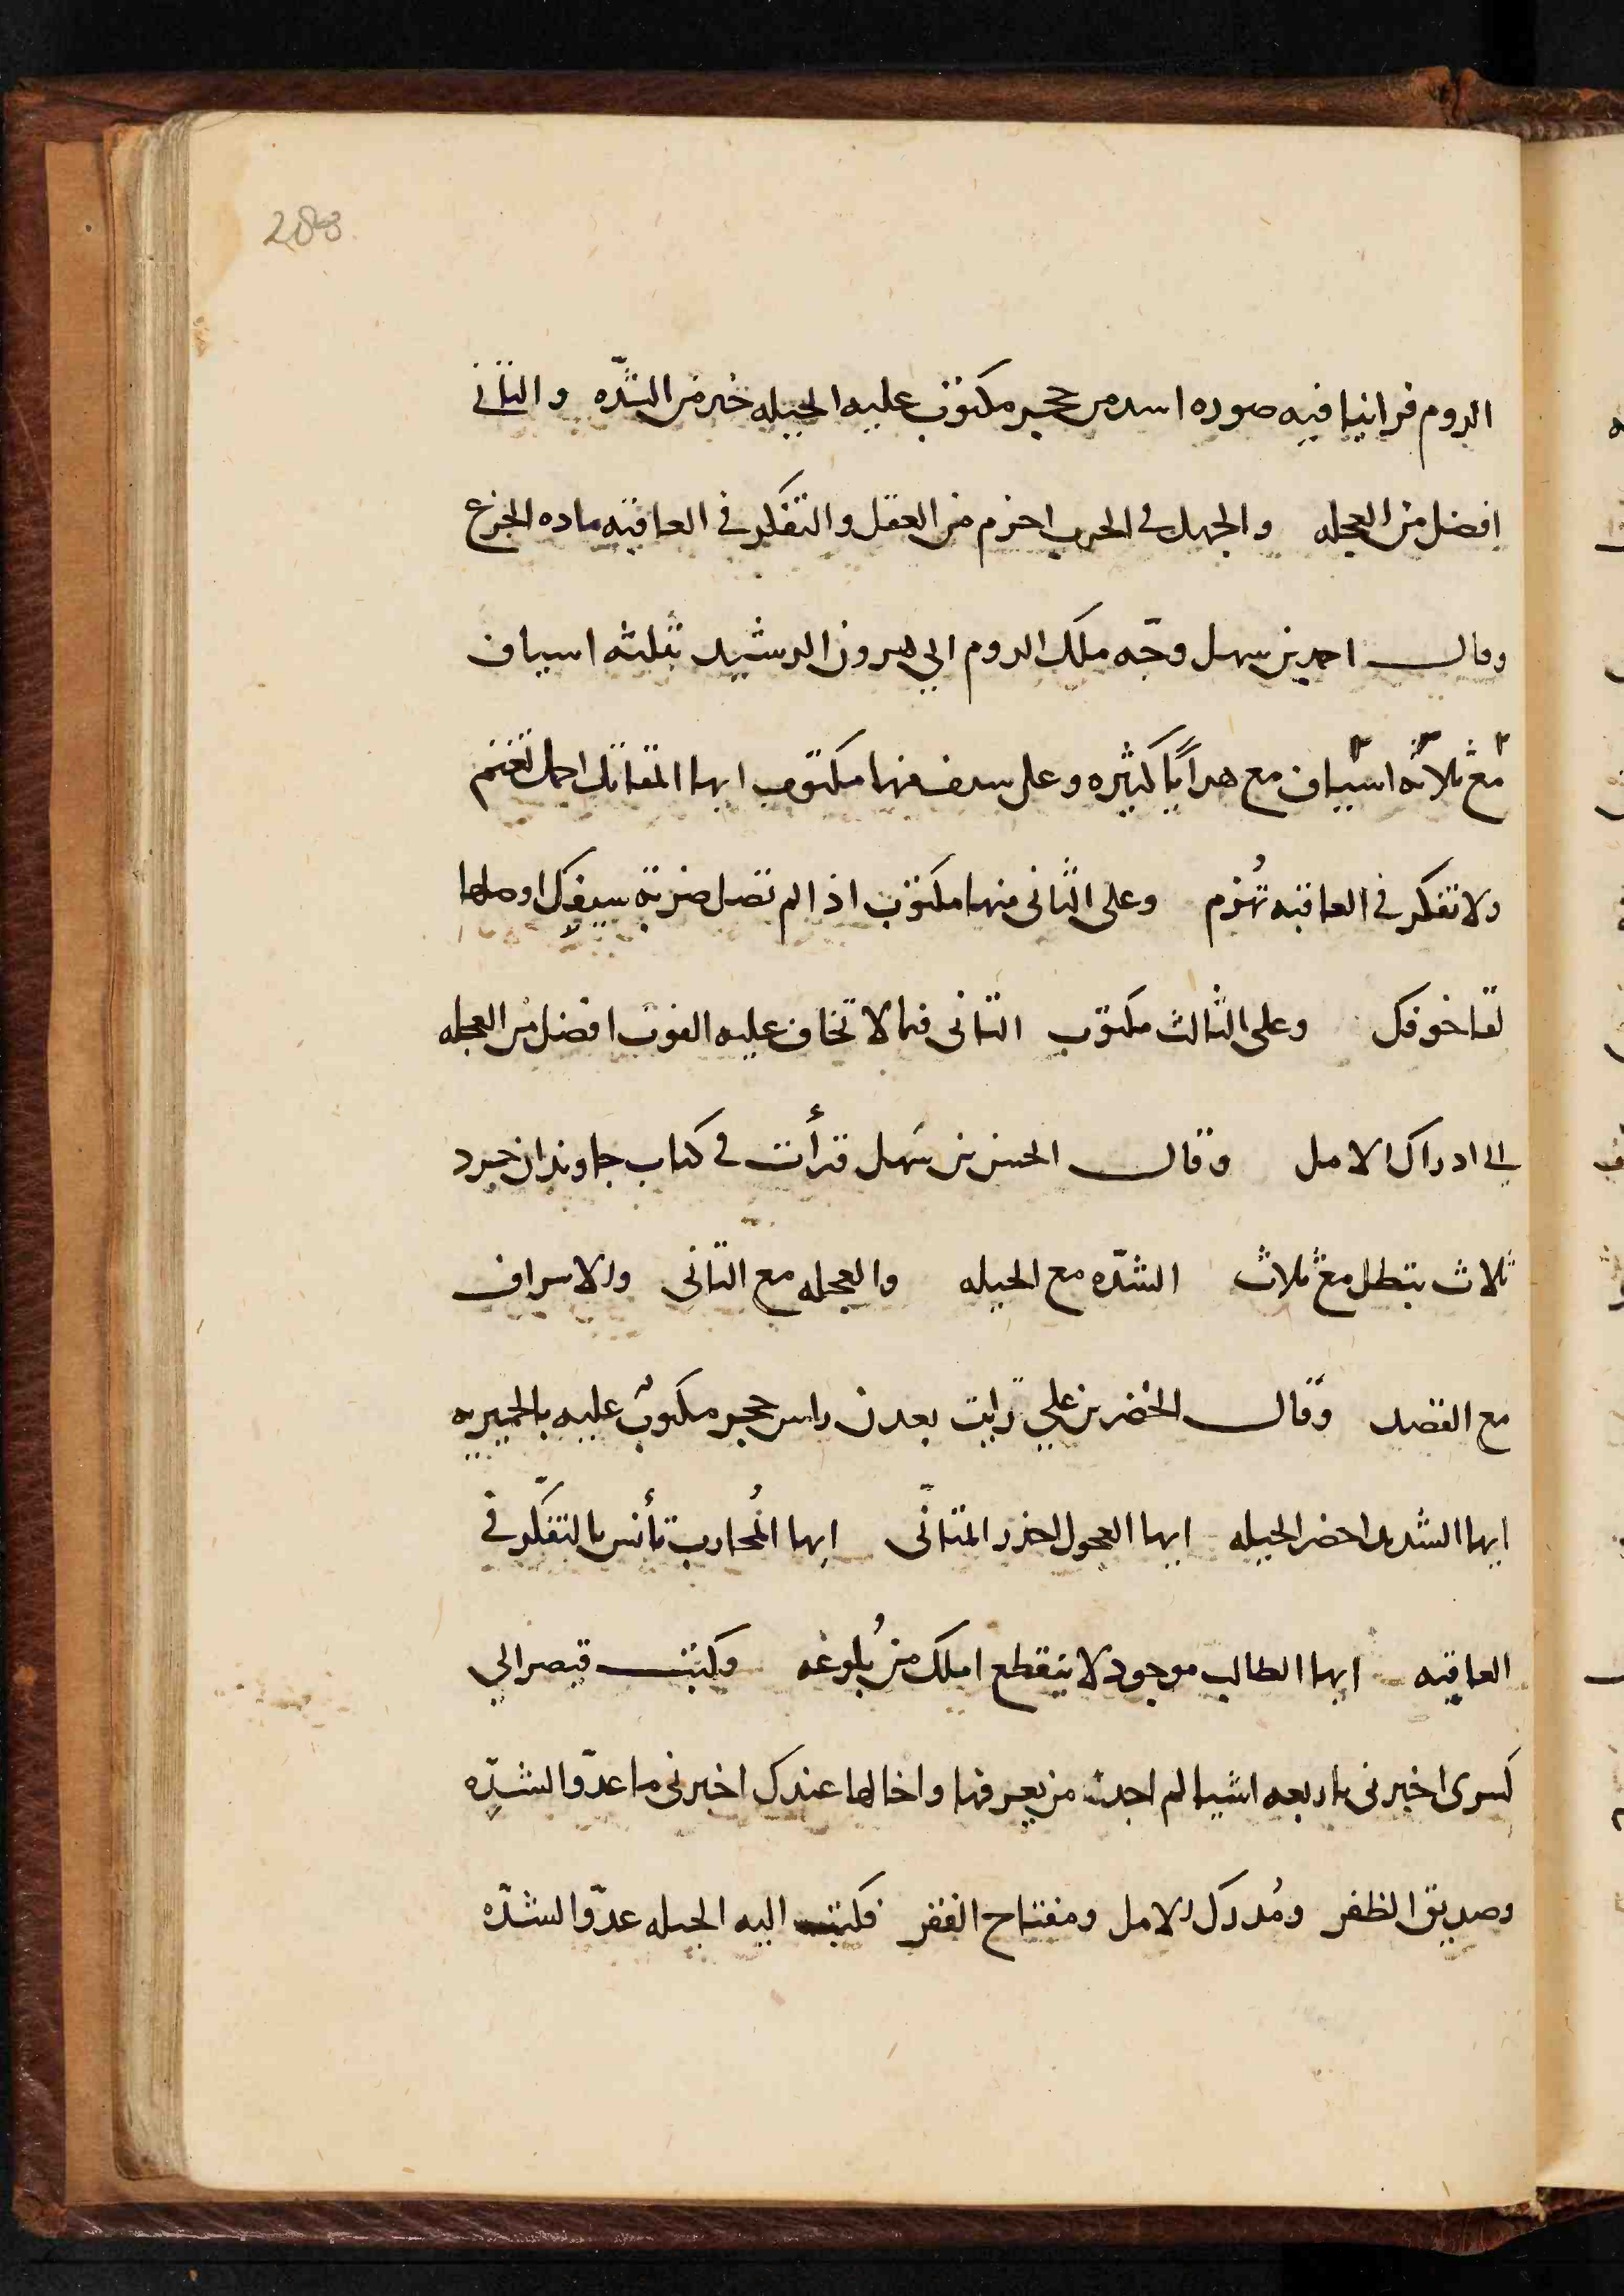 283
الروم فراينا فيه صوره اسد من حجر مكتوب عليه الحيله خير من الشدّه والتانى
افضل من العجله والجهل فى الحرب احزم من العقل والتفكر فى العاقبه ماده الجزع
وقال احمد بن سهل وجّه ملك الروم الى هرون الرشيد بثلثه اسياف
مع ثلاثه اسياف مع هدايا كثيره وعلى سيف منها مكتوب ايها المقاتل احمل تغنم
ولا تفكر فى العاقبه تُهزم وعلى الثانى منها مكتوب اذا لم تصل ضربة سيفك اوصلها
خوفك وعلى الثالث مكتوب التانى فيما لا تخاف عليه الفوت افضل من العجله
الى ادراك الامل وقال الحسن بن سهل قرأت فى كتاب جاوندان خرد
ثلاث تبطل مع ثلاث الشدّه مع الحيله والعجله مع التانى والاسراف
مع القصد وقال الخضر بن على رايت بعدن راس حجر مكتوب عليه بالحميريه
ايها الشديد احضر الحيله ايها العجول احذر المتانّى ايها المُحارب تأنس بالتفكّر فى
العاقبه ايها الطالب موجود لا ينقطع املك من بُلوغه وكتب قيصر الى
كسرى اخبرنى باربعه اشيا لم اجد من يعرفها واخالها عندك اخبرنى ما عدوّ الشدّه
وصديق الظفر ومُدرك الامل ومفتاح الفقر فكتب اليه الحيله عدوّ الشدّه